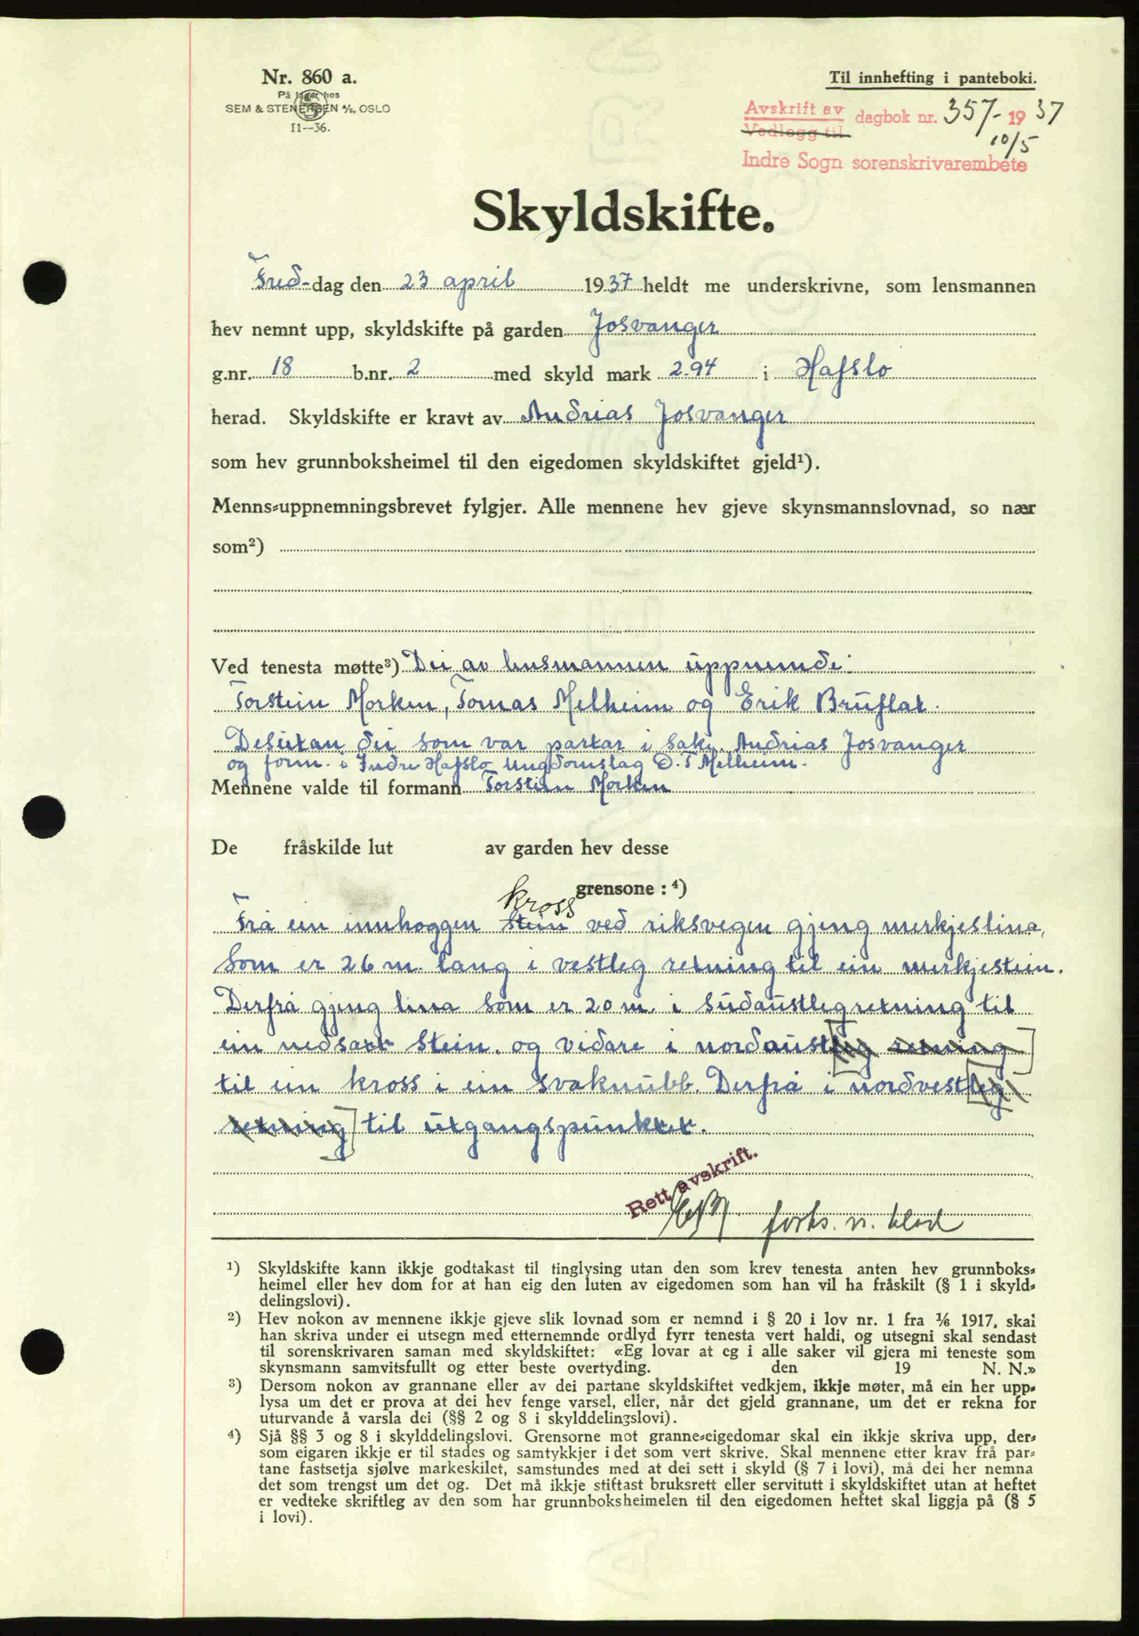 Nr. 860 a.
På lager hos
SEM & STENERSEN A/S, OSLO
11—36.
Til innhefting i panteboki.
Avskrift av
Vedlegg til
dagbok nr. 357-1937
10/5
Indre Sogn sorenskrivarembete
Skyldskifte.
Fredag den 23 april 1937 heldt me underskrivne, som lensmannen
hev nemnt upp, skyldskifte på garden Josvanger
g.nr. 18 b.nr. 2 med skyld mark 2.94 i Hafslo
herad. Skyldskifte er kravt av Andrias Josvanger
som hev grunnboksheimel til den eigedomen skyldskiftet gjeld¹).
Menns-uppnemningsbrevet fylgjer. Alle mennene hev gjeve skynsmannslovnad, so nær
som²)
Ved tenesta møtte³) Dei av lensmannen uppnemde:
Torstein Morken, Tomas Melheim og Erik Bruflat.
Desutan dei som var partar i saki. Andrias Josvanger
og form. i Indre Hafslo Ungdomslag O. T Melheim.
Mennene valde til formann Torstein Morken
De fråskilde lut av garden hev desse
grensone : ⁴)
kross
Frå ein innhoggen stein ved riksvegen gjeng merkjeslina,
som er 26 m. lang i vestleg retning til ein merkjestein.
Derfrå gjeng lina som er 20 m. i sudaustleg retning til
ein nedsatt stein. og vidare i nordaustleg retning
til ein kross i ein svaknubb. Derfrå i nordvestleg
retning til utgangspunktet.
Rett avskrift.
forts. n. blad
¹) Skyldskifte kann ikkje godtakast til tinglysing utan den som krev tenesta anten hev grunnboks-
heimel eller hev dom for at han eig den luten av eigedomen som han vil ha fråskilt (§ 1 i skyld-
delingslovi).
²) Hev nokon av mennene ikkje gjeve slik lovnad som er nemnd i § 20 i lov nr. 1 fra ⅙ 1917, skal
han skriva under ei utsegn med etternemnde ordlyd fyrr tenesta vert haldi, og utsegni skal sendast
til sorenskrivaren saman med skyldskiftet: «Eg lovar at eg i alle saker vil gjera mi teneste som
skynsmann samvitsfullt og etter beste overtyding. den 19 N. N.»
³) Dersom nokon av grannane eller av dei partane skyldskiftet vedkjem, ikkje møter, må ein her upp-
lysa um det er prova at dei hev fenge varsel, eller, når det gjeld grannane, um det er rekna for
uturvande å varsla dei (§§ 2 og 8 i skylddelingslovi).
⁴) Sjå §§ 3 og 8 i skylddelingslovi. Grensorne mot granne-eigedomar skal ein ikkje skriva upp, der-
som eigaren ikkje er til stades og samtykkjer i det som vert skrive. Skal mennene etter krav frå par-
tane fastsetja sjølve markeskilet, samstundes med at dei sett i skyld (§ 7 i lovi), må dei her nemna
det som trengst um det og. Det må ikkje stiftast bruksrett eller servitutt i skyldskiftet utan at heftet
er vedteke skriftleg av den som har grunnboksheimelen til den eigedomen heftet skal liggja på (§ 5
i lovi).